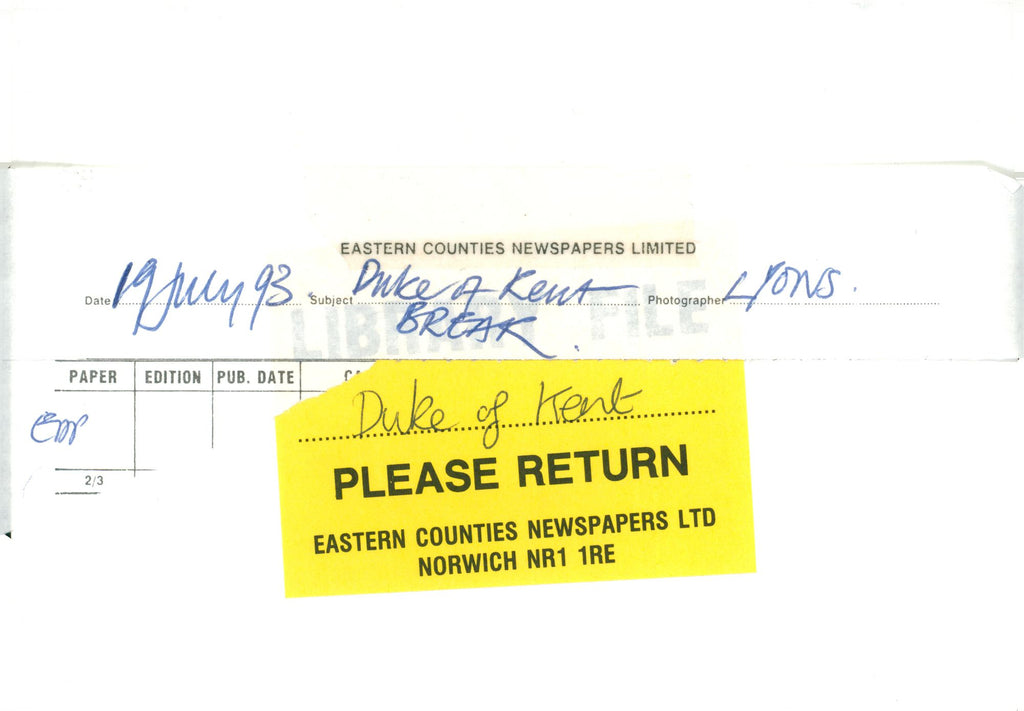 EASTERN COUNTIES NEWSPAPERS LIMITED
Date 19 July 93. Subject Duke of Kent Photographer LYONS.
BREAK.
LIBRARY FILE
PAPER EDITION PUB. DATE CA
EDP
Duke of Kent
2/3
PLEASE RETURN
EASTERN COUNTIES NEWSPAPERS LTD
NORWICH NR1 1RE